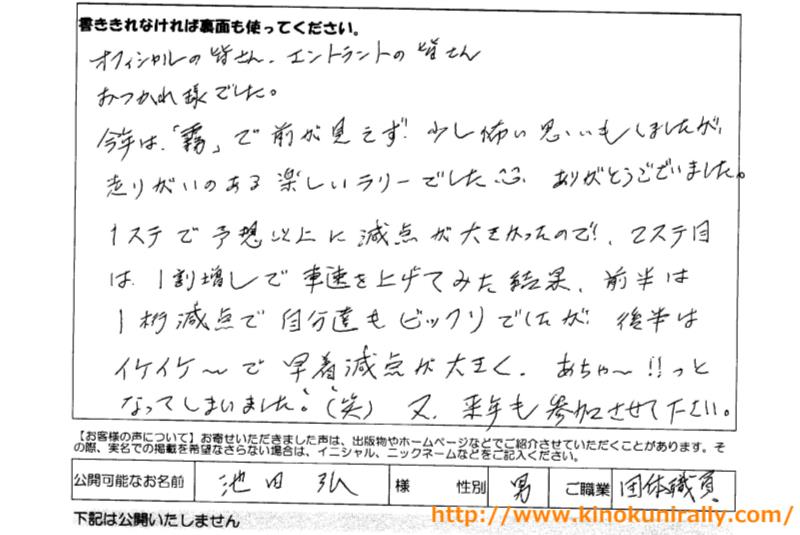 書ききれなければ裏面も使ってください。
オフィシャルの皆さん、エントラントの皆さん
おつかれ様でした。
今年は、「霧」で前が見えず、少し怖い思いもしましたが、
走りがいのある楽しいラリーでした ありがとうございました。
1ステで予想以上に減点が大きかったので、2ステ目
は、1割増しで車速を上げてみた結果、前半は
1桁減点で自分達もビックリでしたが、後半は
イケイケ〜で早着減点が大きく、あちゃ〜!!っと
なってしまいました。(笑) 又、来年も参加させて下さい。
【お客様の声について】お寄せいただきました声は、出版物やホームページなどでご紹介させていただくことがあります。そ
の際、実名での掲載を希望なさらない場合は、イニシャル、ニックネームなどをご記入ください。
公開可能なお名前 池田弘 様 性別 男 ご職業 団体職員
下記は公開いたしません
http://www.kinokunirally.com/